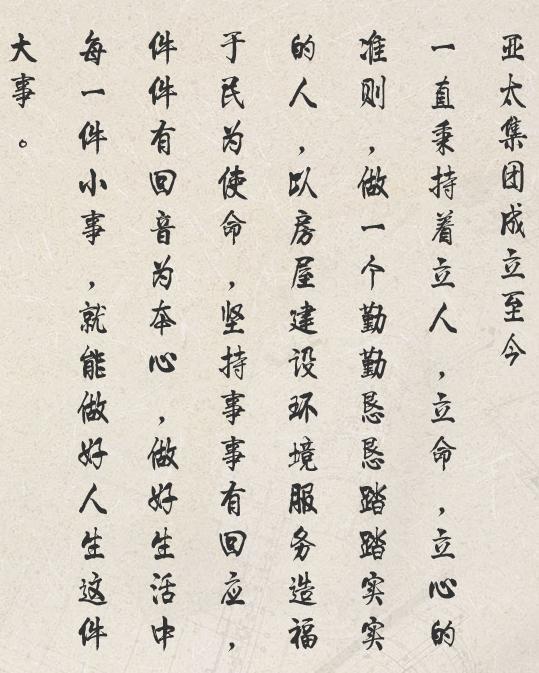 亚太集团成立至今
一直秉持着立人，立命，立心的
准则，做一个勤勤恳恳踏踏实实
的人，以房屋建设环境服务造福
于民为使命，坚持事事有回应，
件件有回音为本心，做好生活中
每一件小事，就能做好人生这件
大事。